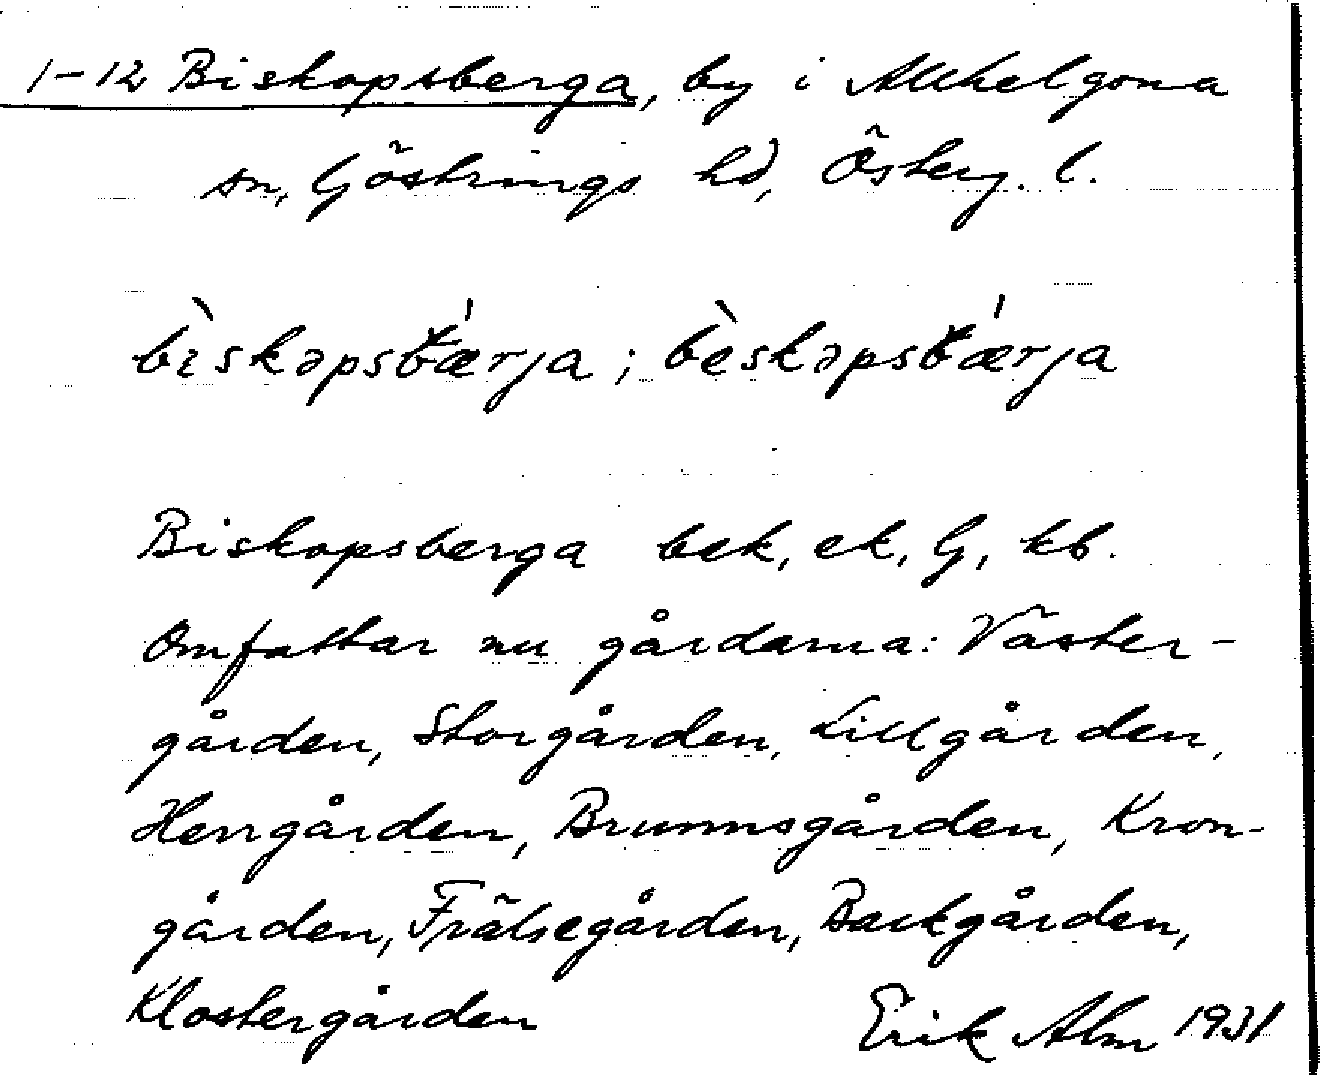 1-12 Biskopsberga, by i Allhelgona
sn, Göstrings hd, Österg. l.
bìskəpsbǽrja ; bèskəpsbǽrja
Biskopsberga bek, ek, G, kb.
Omfattar nu gårdarna: Väster-
gården, Storgården, Lillgården,
Herrgården, Brunnsgården, Kron-
gården, Frälsegården, Backgården,
Klostergården Erik Alm 1931